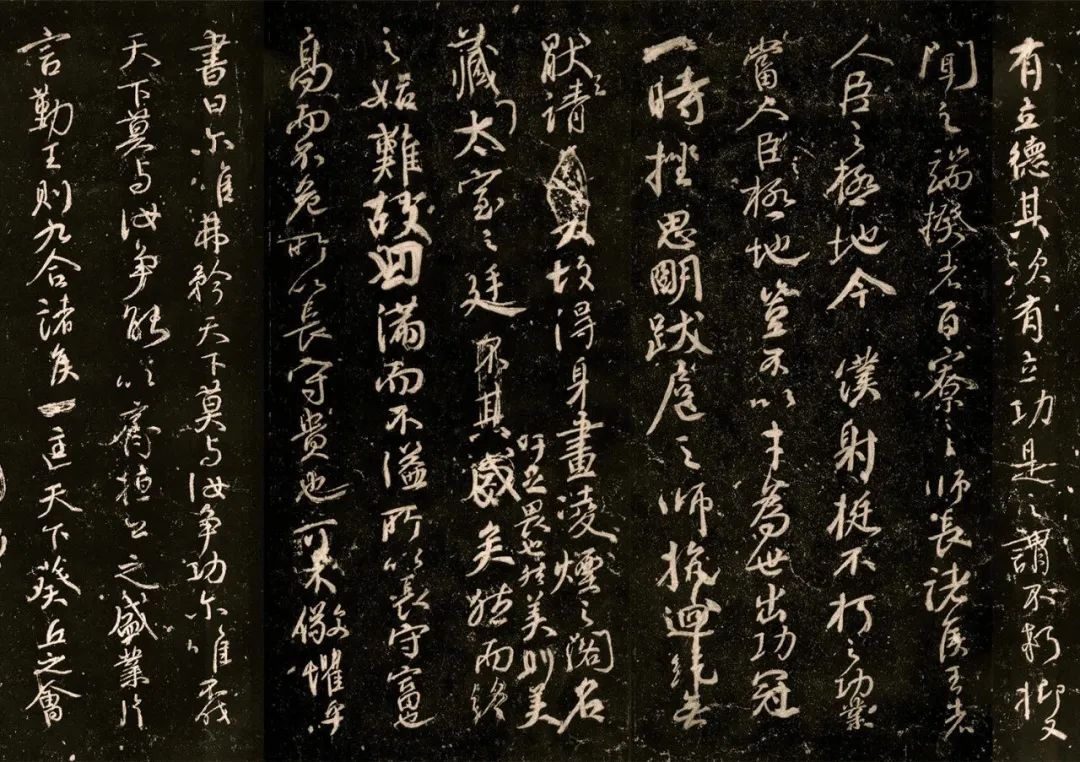 有立德其次有立功是之謂不朽抑又
聞之端揆者百寮之師長諸侯王者
人臣之極地今僕射挺不朽之功業
當人臣之極地豈不以才為世出功冠
一時挫思明跋扈之師抗迴紇無
厭之請故得身畫凌煙之閣名
藏太室之廷吁足畏也然美則美矣然而終
之始難故曰滿而不溢所以長守富也
高而不危所以長守貴也可不儆懼乎
書曰尔唯弗矜天下莫与汝争功尔唯不伐
天下莫与汝争能以齊桓公之盛業片
言勤王則九合諸侯一匡天下葵丘之會